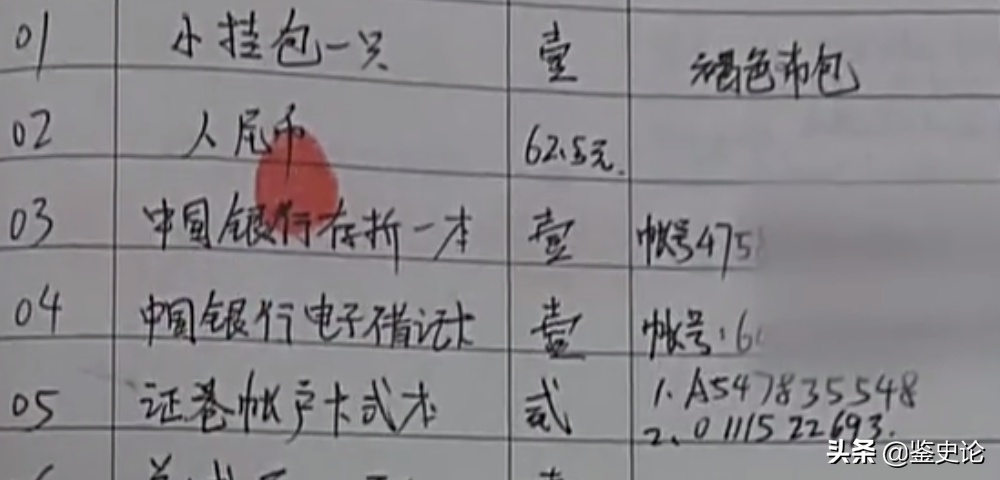 01 小挂包一只 壹 褐色布包
02 人民币 62.5元.
03 中国银行存折一本 壹 帐号475
04 中国银行电子借记卡 壹 帐号:6
05 证卷帐户卡弍本 弍 1. A547835548
2、0111522693.
头条 @鉴史论